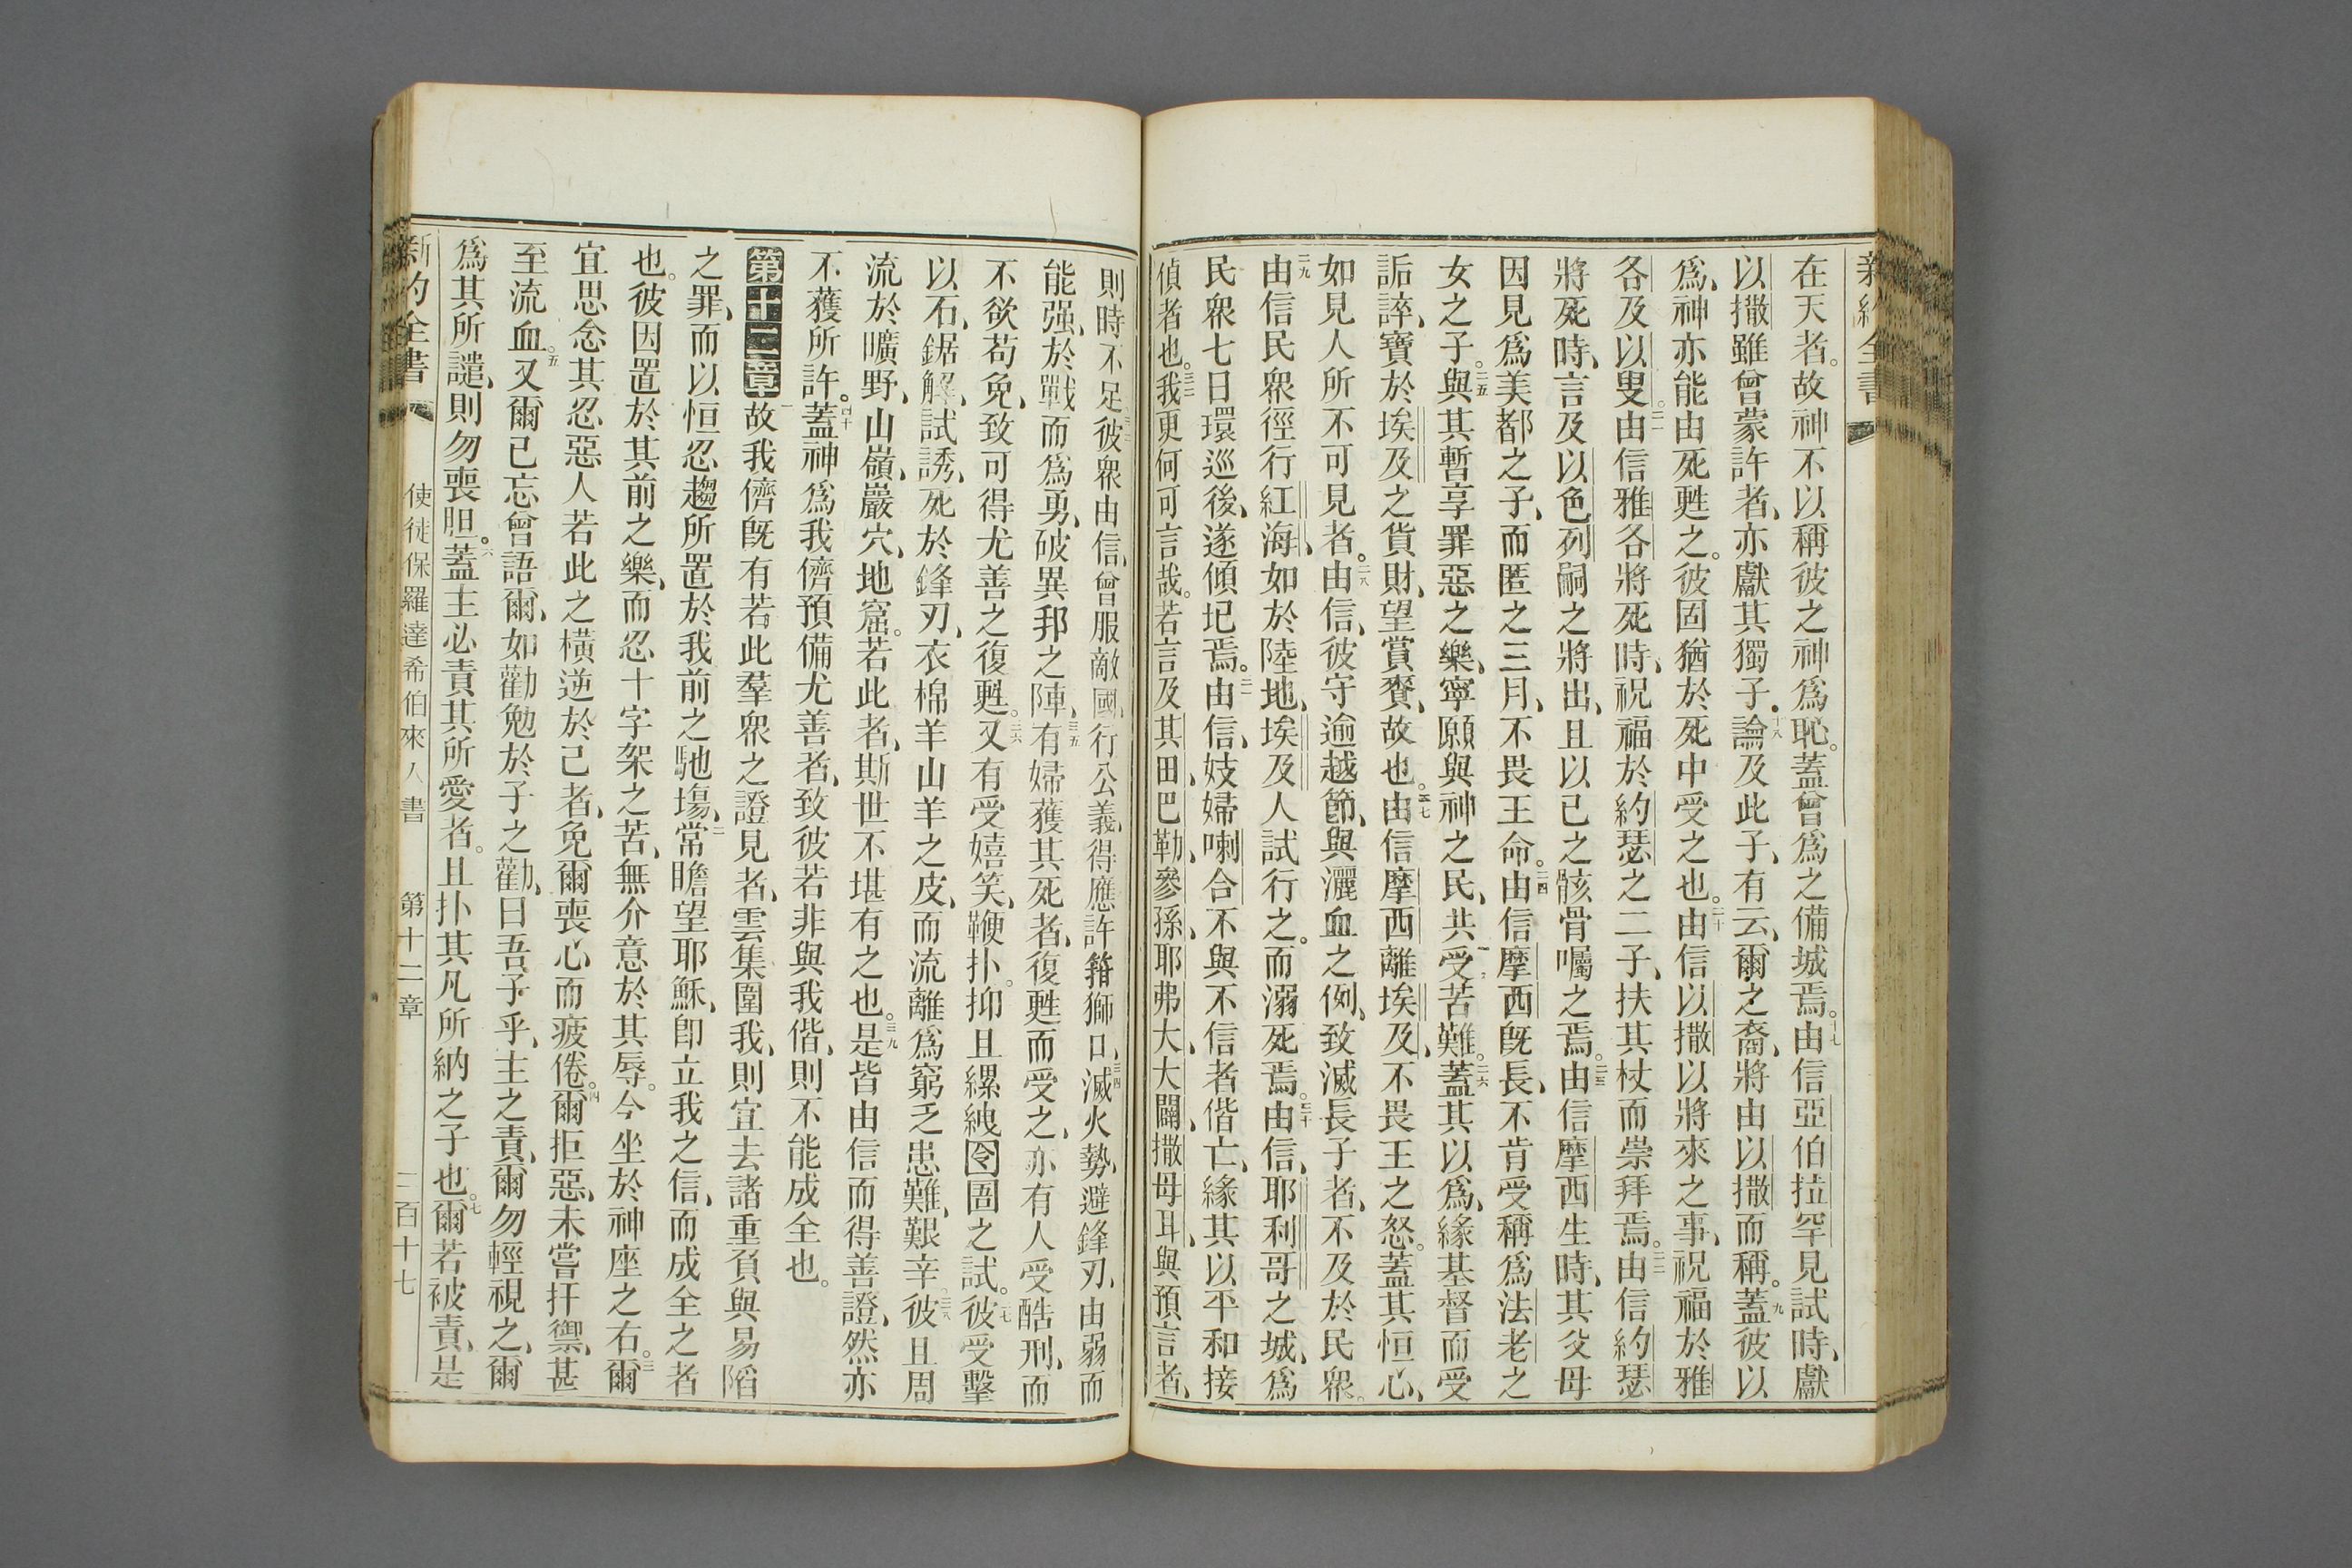 新約全書
在天者。故神不以稱彼之神爲恥。蓋曾爲之備城焉。十七由信亞伯拉罕見試時、獻
以撒雖曾蒙許者、亦獻其獨子。十八論及此子、有云、爾之裔、將由以撒而稱。十九蓋彼以
爲、神亦能由死甦之。彼固猶於死中受之也。二十由信以撒以將來之事、祝福於雅
各及以叟。二一由信雅各將死時、祝福於約瑟之二子、扶其杖而崇拜焉。二二由信約瑟
將死時、言及以色列嗣之將出、且以己之骸骨囑之焉。二三由信摩西生時、其父母
因見爲美都之子、而匿之三月、不畏王命。二四由信摩西旣長、不肯受稱爲法老之
女之子。二五與其暫享罪惡之樂、寧願與神之民、共受苦難。二六蓋其以爲、緣基督而受
詬誶、寶於埃及之貨財、望賞賚、故也。二七由信摩西離埃及、不畏王之怒。蓋其恒心、
如見人所不可見者。二八由信、彼守逾越節、與灑血之例、致滅長子者、不及於民衆。
二九由信民衆徑行紅海、如於陸地、埃及人試行之。而溺死焉。三十由信、耶利哥之城、爲
民衆七日環巡後、遂傾圮焉。三一由信、妓婦喇合不與不信者偕亡、緣其以平和接
偵者也。三二我更何可言哉。若言及其田、巴勒、參孫、耶弗大、大闢、撒母耳、與預言者、
則時不足。三三彼衆由信、曾服敵國、行公義、得應許、箝獅口、三四滅火勢、避鋒刃、由弱而
能强、於戰而爲勇、破異邦之陣、三五有婦獲其死者、復甦而受之、亦有人受酷刑、而
不欲苟免、致可得尤善之復甦。三六又有受嬉笑、鞭扑。抑且縲絏囹圄之試。三七彼受擊
以石、鋸解、試誘、死於鋒刃、衣棉羊山羊之皮、而流離爲窮乏患難、艱辛、三八彼且周
流於曠野、山嶺、巖穴、地窟。若此者、斯世不堪有之也。三九是皆由信而得善證、然亦
不獲所許。四十蓋神爲我儕預備尤善者、致彼若非與我偕、則不能成全也。
第十二章 一故我儕旣有若此羣衆之證見者、雲集圍我、則宜去諸重負與易陷
之罪、而以恒忍趨所置於我前之馳塲、二常瞻望耶穌、卽立我之信、而成全之者
也。彼因置於其前之樂、而忍十字架之苦、無介意於其辱。今坐於神座之右。三爾
宜思念其忍惡人若此之橫逆於己者、免爾喪心而疲倦。四爾拒惡、未嘗扞禦、甚
至流血。五又爾已忘曾語爾、如勸勉於子之勸、曰吾子乎、主之責、爾勿輕視之、爾
爲其所譴、則勿喪胆。六蓋主必責其所愛者。且扑其凡所納之子也。七爾若被責、是
新約全書 使徒保羅達希伯來人書 第十二章 二百十七